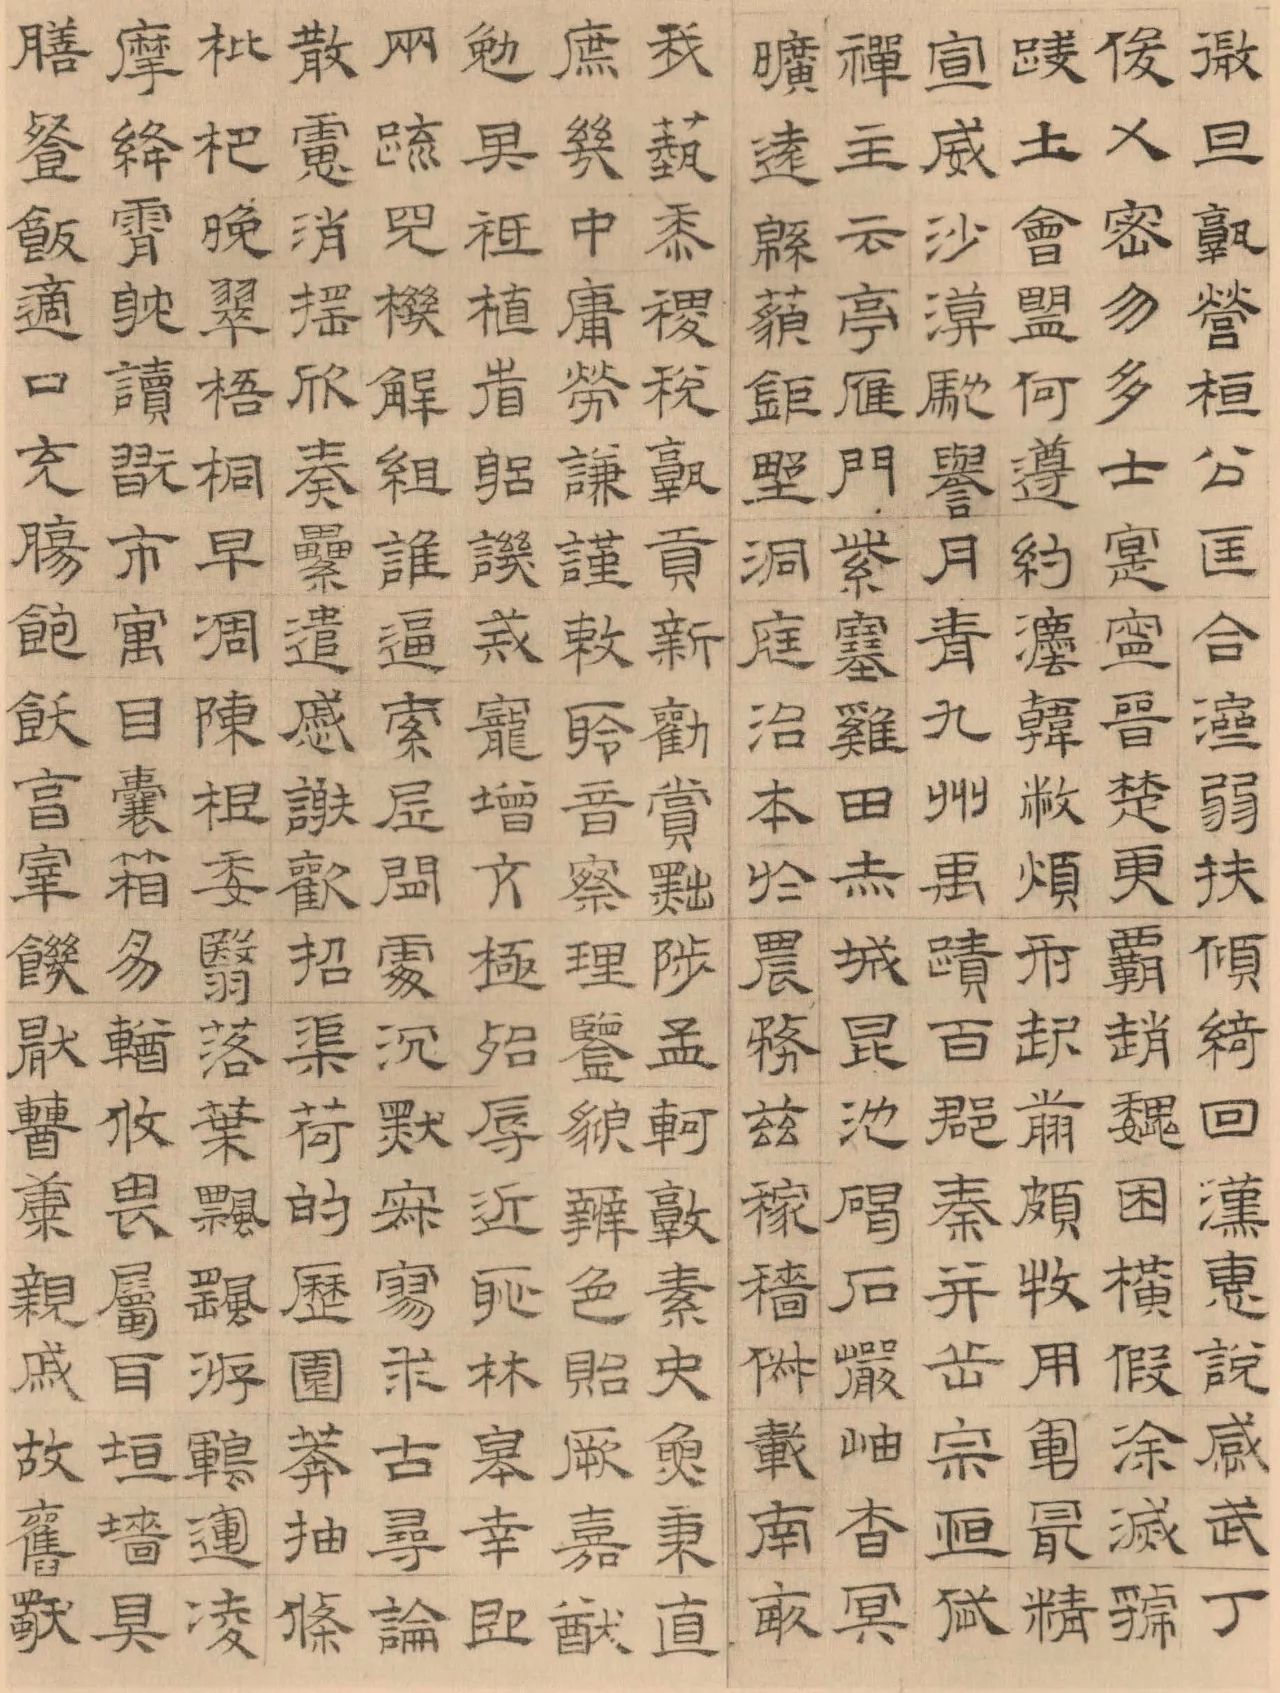 微旦孰營桓公匡合濟弱扶傾綺回漢惠說感武丁
俊乂密勿多士寔寧晉楚更霸趙魏困橫假涂滅虢
踐土會盟何遵約灋韓敝煩刑起翦頗牧用軍最精
宣威沙漠馳譽丹青九州禹蹟百郡秦并岳宗恒岱
禪主云亭雁門紫塞雞田赤城昆池碣石巖岫杳冥
曠遠緜藐鉅野洞庭治本於農務茲稼穡俶載南畝
我藝黍稷稅孰貢新勸賞黜陟孟軻敦素史魚秉直
庶幾中庸勞謙謹敕聆音察理鑒貌辨色貽厥嘉猷
勉其祗植省躬譏戒寵增亢極殆辱近恥林皋幸即
兩疏見機解組誰逼索居閒處沉默寂寥求古尋論
散慮消搖欣奏纍遣慼謝歡招渠荷的歷園莽抽條
枇杷晚翠梧桐早凋陳根委翳落葉飄颻游鶤運凌
摩絳霄躭讀翫市寓目囊箱易輶攸畏屬耳垣牆具
膳飡飯適口充腸飽飫亯宰饑厭糟糠親戚故舊猒